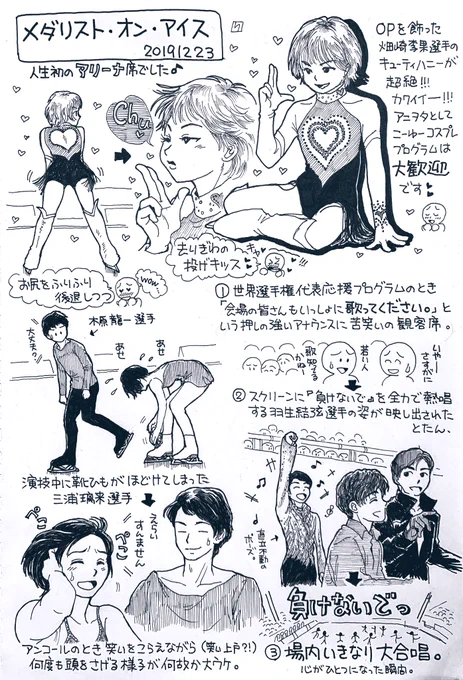 メダリスト・オン・アイス
2019.12.23
人生初のアリーナ席でした♪
OPを飾った
畑崎李果選手の
キューティハニーが
超絶!!!
カワイイー!!!
アニヲタとして
こーゆーコスプレ
プログラムは
大歓迎
です♥
Chu
去りぎわの
投げキッス
お尻をふりふり
後退しつつ
wow
① 世界選手権代表応援プログラムのとき
「会場の皆さんもいっしょに歌ってください。」と
いう押しの強いアナウンスに苦笑いの観客席。
大丈夫?
木原龍一選手
あせ
あせ
歌知ってる
かな…
若い人
いやー
さすがに
② スクリーンに『負けないで』を全力で熱唱
する羽生結弦選手の姿が映し出された
とたん。
演技中に靴ひもがほどけてしまった
三浦璃来選手
ペコ
ペこ
すんません
直立不動の
ポーズ。
負けないどっ
アンコールのとき 笑いをこらえながら (笑い上戸?!)
何度も頭をさげる様子が何故か大ウケ。
③ 場内いきなり大合唱。
心がひとつになった瞬間。